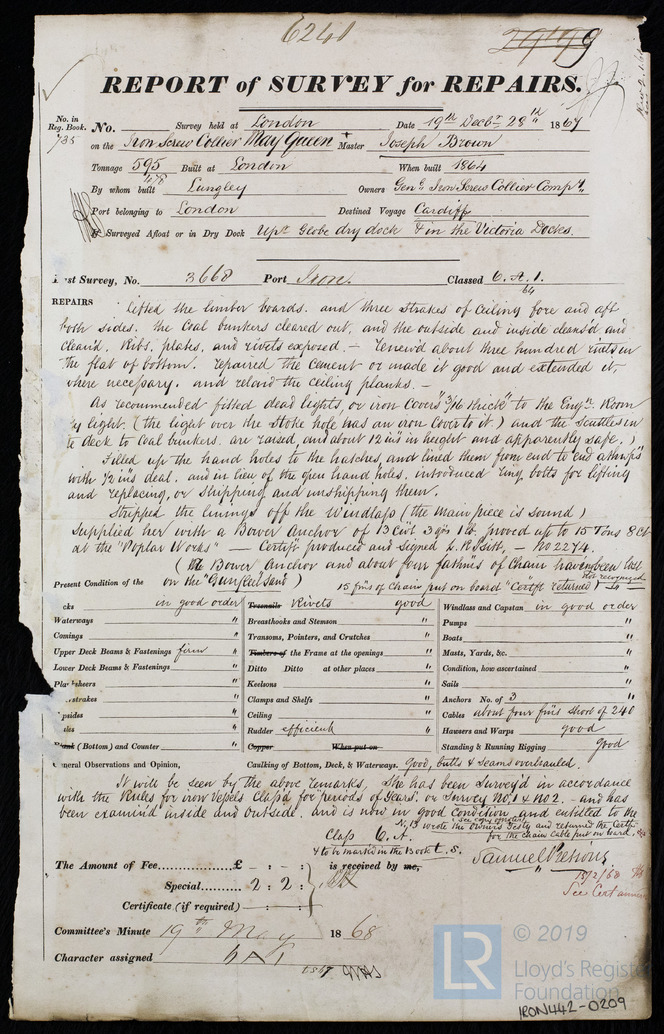 6241
29199
REPORT of SURVEY for REPAIRS.
No. in Reg. Book. No. Survey held at London Date 19th Decbr 28th 1867
735 on the Iron Screw Collier May Queen Master Joseph Brown
Tonnage 595 Built at London When built 1864
478
By whom built Lungley Owners Genl Iron Screw Collier Compy.
Port belonging to London Destined Voyage Cardiff
If Surveyed Afloat or in Dry Dock Upr Globe dry dock & in the Victoria Docks.
Last Survey, No. 3668 Port Iron. Classed 6. A. 1.
64
REPAIRS Lifted the limber boards. and three strakes of ceiling fore and aft
both sides. the Coal bunkers cleared out, and the outside and inside cleans'd and
clean'd. Ribs, plates, and rivets exposed. — Renew'd about three hundred rivets in
the flat of bottom. repaired the cement or made it good and extended it,
where necessary. and relaid the ceiling planks. —
As recommended fitted dead lights, or iron covers 3/16 thick" to the Engn. Room
sky light. (the light over the stoke hole has an iron cover to it) and the Scuttles in
te deck to coal bunkers are raised, and about 12 ins in height and apparently safe.)
Filled up the hand holes to the hatches, and lined them from end to end athwps
with 1/2 ins deal. and in lieu of the open hand holes, introduced ring bolts for lifting
and replacing, or shipping and unshipping them.
Stripped the linings off the Windlass (the main piece is sound)
Supplied her with a Bower Anchor of 13 Cwt 3 qrs 1 lb. proved up to 15 Tons 8 Ct
at the "Poplar Works" — Certift produced and signed — No 2274.
(the Bower Anchor and about four fathms of Chain having been lost
on the "Gunfleet Sand") not recovered
Present Condition of the 15 fms of Chain put on board "Certift returned"
cks in good order Treenails Rivets good Windlass and Capstan in good order
Waterways " Breasthooks and Stemson " Pumps "
Comings " Transoms, Pointers, and Crutches " Boats "
Upper Deck Beams & Fastenings firm " Timbers of the Frame at the openings " Masts, Yards, &c. "
Lower Deck Beams & Fastenings " Ditto Ditto at other places " Condition, how ascertained "
Plansheers " Keelsons " Sails "
strakes " Clamps and Shelfs " Anchors No. of 3 "
Topsides " Ceiling " Cables about four fms short of 240
ales " Rudder efficient " Hawsers and Warps good
Plank (Bottom) and Counter " Copper When put on " Standing & Running Rigging good
General Observations and Opinion, Caulking of Bottom, Deck, & Waterways. good, butts & seams overhauled.
It will be seen by the above remarks, She has been survey'd in accordance
with the Rules for iron vessels Class'd for periods of Years. or Survey No. 1 & No 2. — and has
been examined inside and outside, and is now in good condition and entitled to the
Class 6. A. N.B. wrote the owners Secty and returned the Certif. for the chain cable put on board.
& to be marked in the Book t. S.
The Amount of Fee............£ - : - : is received by me,
Special............ 2 : 2 :
Samuel Pretious
15/2/68
See Cert
Certificate (if required) : :
Committee's Minute 19th May 1868
Character assigned 6 A 1
© 2019
LR Lloyd's Register
Foundation
IRON442-0209